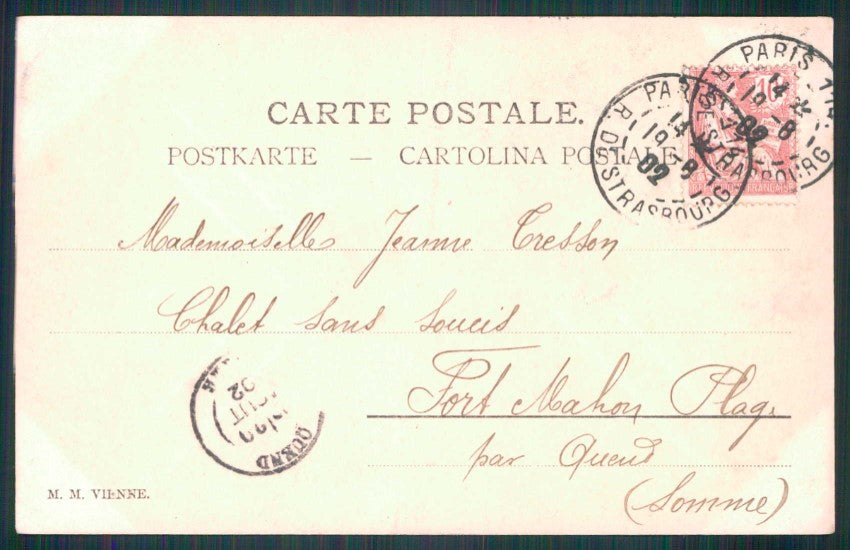 CARTE POSTALE.
POSTKARTE — CARTOLINA POSTALE
PARIS
14
19-8
02
R. DE STRASBOURG
PARIS 114
14
19-8
02
R. DE STRASBOURG
10
FRANÇAISE
Mademoiselle Jeanne Cresson
Chalet Sans Soucis
Fort Mahon Plag.
par Queud
(Somme)
QUEND
02
M. M. VIENNE.